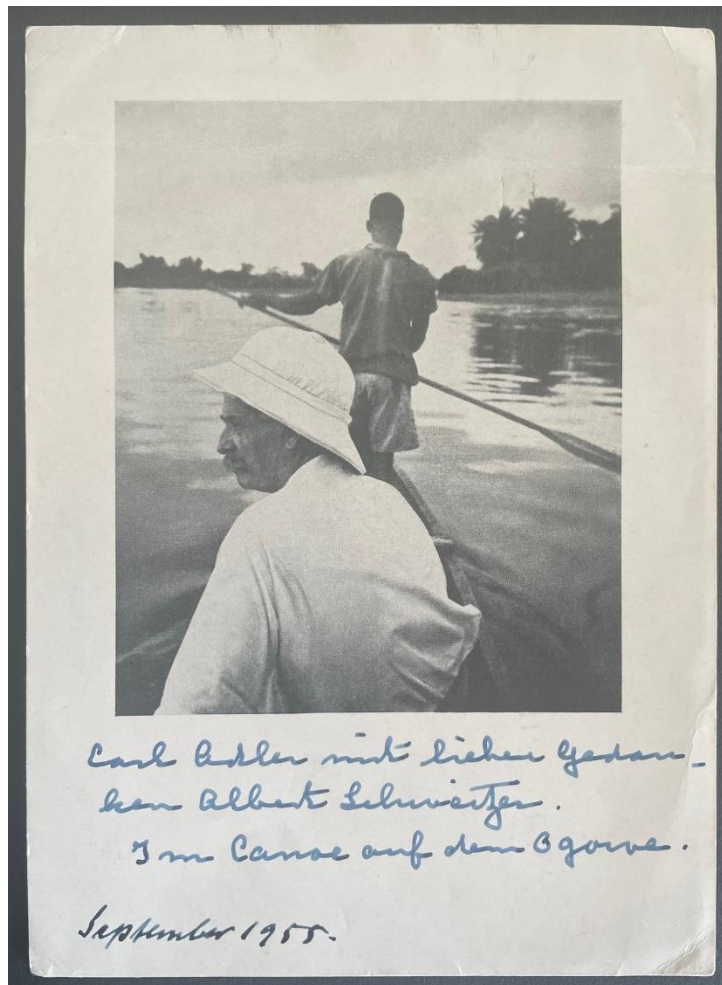 Carl Adler mit lieben Gedan-
ken Albert Schweitzer.
Im Canoe auf dem Ogowe.
September 1955.